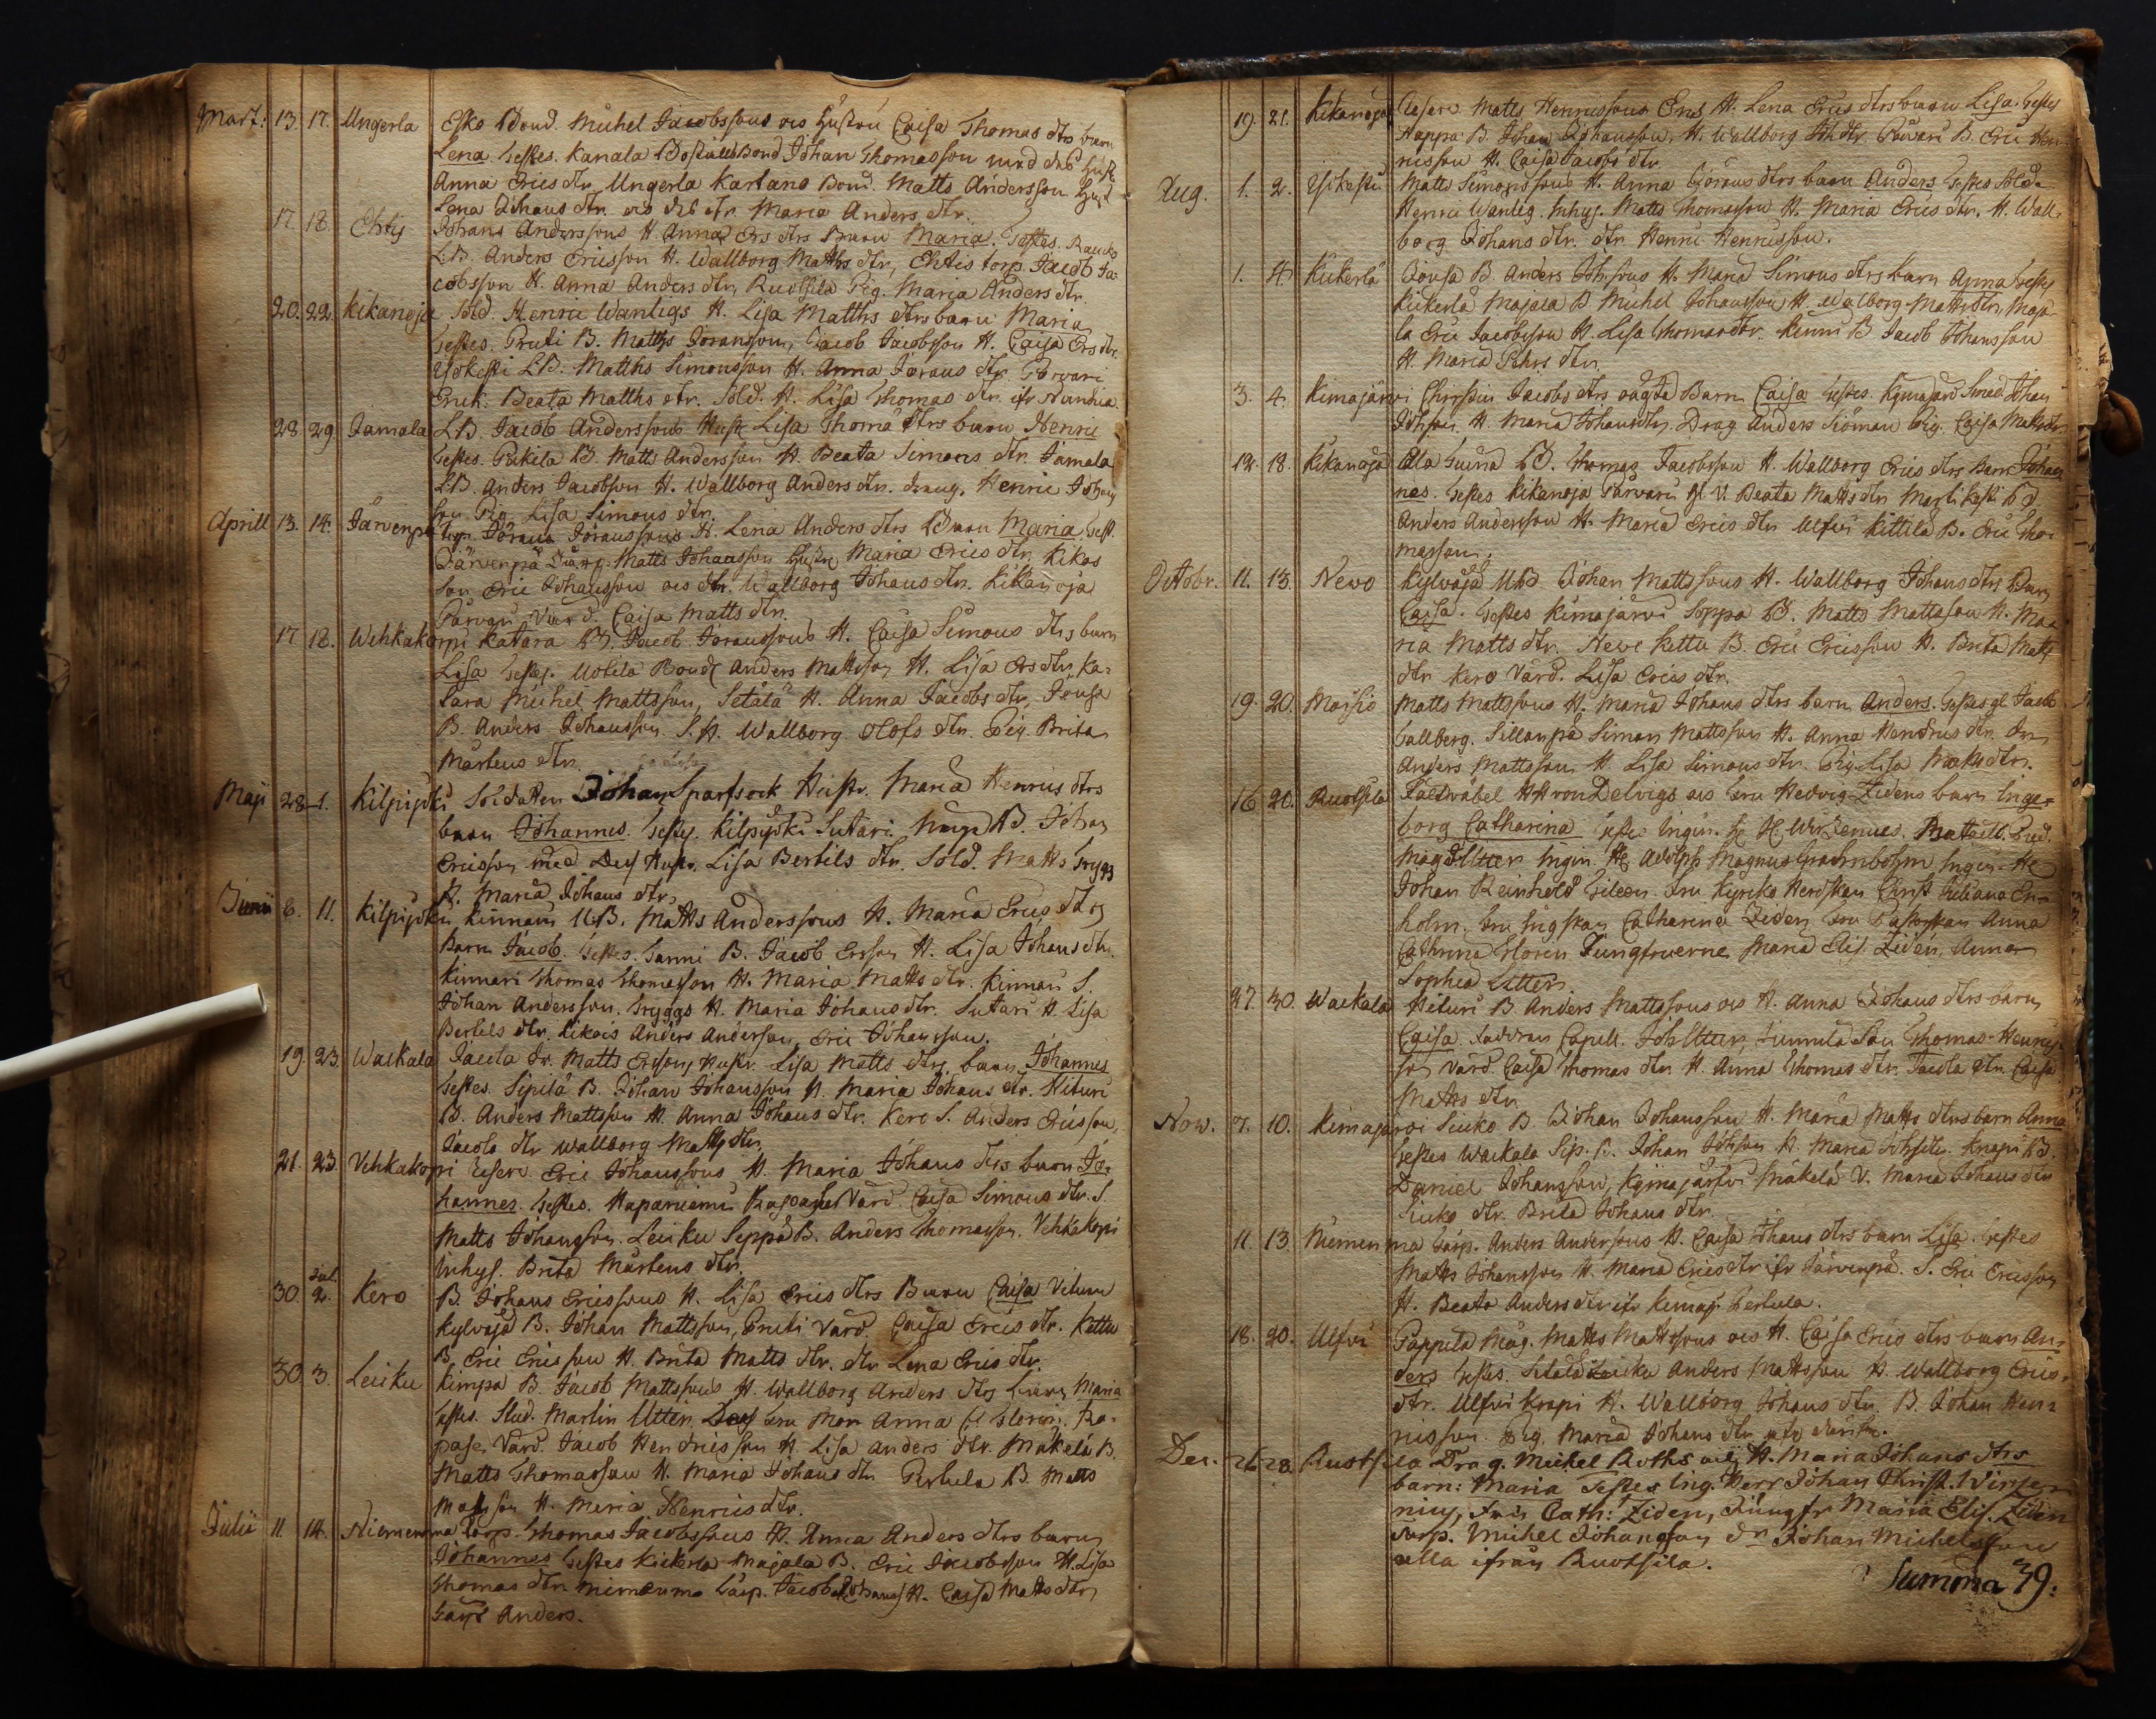 Mart: 13. 17. Ungerla Esko Bond. Michel Jacobssons ock hustru Caisa Thomas dtrs barn
Lena. Testes. Kanala Boställs Bond Johan Thomasson med dess hust.
Anna Erics dtr. Ungerla Kartano Bond. Matts Andersson hust
Lena Johans dtr. dtr. Maria Anders dtr.
17. 18. Ehtis Johans Anderssons H. Anna Ers dtrs Barn Maria. Testes.
LB. Anders Ericsson H. Wallborg Matths dtr, Ehtis torp. Jacob Ja-
cobsson H. Anna Anders dtr, Ruotsila Pig. Maria Anders dtr.
20. 22. Kikanoja Sold. Henric Wanligs H. Lisa Matths dtrs barn Maria
Testes. Pruki B. Matths Joransson, Jacob Jacobsson H. Caisa Ers dtr.
LB. Matths Simonsson H. Anna Jorans dtr. Parvari
Enk. Beata Matths dtr. Sold. H. Lisa Thomas dtr.
28 29. Jamala LB. Jacob Anderssons Hust. Lisa Thoma dtrs barn Henric
Testes. B. Matts Andersson H. Beata Simons dtr. Jamala
LB. Anders Jacobson H. Wallborg Anders dtr. Henric Johans
son Pig. Lisa Simons dtr.
Aprill 13. 14. Järvenpä Jörans Joranssons H. Lena Anders dtrs Barn Maria. Test.
Järvenpä Matts Johansson hustru Maria Erics dtr. Kikas
son Eric Johansson ock dtr. Wallborg Johans dtr. Kikanoja
Parvari Värd. Caisa Matts dtr.
17 18. Wehkakorpi Katara B. Jacob Joranssons H. Caisa Simons dtrs barn
Lisa Testes. Uotila Bond Anders Mattsson H. Lisa Ers dtr. Ka-
tara Michel Mattsson, Setälä H. Anna Jacobs dtr, Jousa
B. Anders Johansson S. H. Wallborg Olofs dtr. Pig. Brita
Martens dtr.
Maji 28 1. Kilpijoki Soldaten Johan Sparfsock Hustr. Maria Henrics dtrs
barn Johannes. Testes. Kilpijoki Sutari B. Johan
Ericsson med Des Hustr. Lisa Bertils dtr. Sold. Matts Trygg
H. Maria Johans dtr.
Junii 6. 11. Kilpijoki Kinnari UB. Matts Anderssons H. Maria Erics dtrs
Barn Jacob. Testes. Tanni B. Jacob Ersson H. Lisa Johans dtr.
Kinnari Thomas Thomasson H. Maria Matts dtr. Kinnari S.
Johan Andersson. Tryggs H. Maria Johans dtr. Sutari H. Lisa
Bertels dtr. Anders Anderson, Eric Johansson.
19. 23. Waekala Jacola Dr. Matts Ersons Hustr. Lisa Matts dtrs, barn Johannes
Testes. Sipilä B. Johan Johansson H. Maria Johans dtr. Hituri
B. Anders Mattsson H. Anna Johans dtr. Kero S. Anders Ericsson,
Jacola dtr Wallborg Matts dtr.
21. 23. Vehkakopri Eric Johanssons H. Maria Johans dtrs barn Jo-
hannes. Testes. Haparniemi Värd. Caisa Simons dtr. S.
Matts Johansson. Leicku Seppä B. Anders Thomasson. Vehkakopri
Inhys. Brita Martens dtr.
30 Jul. 2. Kero B. Johans Ericssons H. Lisa Erics dtrs Barn Caisa
Kylvojä B. Johan Mattsson, Pruki Värd Caisa Erics dtr. Kettu
B. Eric Ericsson H. Brita Matts dtr. dtr Lena Erics dtr.
30 3. Leicku Kimpa B. Jacob Mattssons H. Wallborg Anders dtrs barn Maria
Testes. Stud. Martin Utter, Des Mor Anna Ra-
pase, Värd. Jacob Hendricsson H. Lisa Anders dtr. Mäkelä B.
Matts Thomasson H. Maria Johans dtr Pertula B. Matts
Matsson H. Maria Henrics dtr.
Julii 11 14. Niemenma Torp. Thomas Jacobssons H. Anna Anders dtrs barn
Johannes Testes Kiekerla Majala B. Eric Jacobsson H. Lisa
Thomas dtr. Nimenma Torp. Jacob Johans H. Caisa Matts dtr,
Anders.
19. 21. Kikanoja Matts Henricssons H. Lena Erics dtrs barn Lisa. Testes
Happa B. Johan Johansson, H. Wallborg Joh. dtr. Parvari B. Eric Hen-
ricsson H. Caisa Jacobs dtr.
Aug. 1. 2. Matts Simonssons H. Anna Görans dtrs barn Anders Testes Sold.
Henric Wanlig. Inhys. Matts Thomasson H. Maria Erics dtr. H. Wall-
borg Johans dtr. dtr Henric Henricsson.
1. 4. Kiekerlä Jousa B. Anders Johssons H. Maria Simons dtrs barn Anna Testes
Kiekerlä Majala B Michel Johansson H. Walborg Matts dtr, Maja-
la Eric Jacobsson H. Lisa Thomas dtr. Kinni B Jacob Johansson
H. Maria Pehrs dtr.
3. 4. Kimajärvi Chirstin Jacobs dtrs oägta Barn Caisa Testes. Smed Johan
Johsson, H. Maria Johans dtr. Drag Anders Siöman Pig. Caisa Matts dtr.
12. 18. Kikanoja B. Thomas Jacobsson H. Wallborg Erics dtrs Barn Johan-
nes. Testes Kikanoja Parvari gl V. Beata Matts dtr B
Anders Andersson H. Maria Erics dtr Ulfvi Kittilä B. Eric Tho-
masson.
Octobr. 11. 13. Newo Kylväjä UB Johan Mattssons H. Wallborg Johans dtrs Barn
Caisa. Testes Kimajärvi Seppä B. Matts Mattsson H. Ma-
ria Matts dtr. Newe Kettu B. Eric Ericsson H. Brita Matts
dtr. Kero Värd. Lisa Erics dtr.
19. 20. Moisio Matts Mattssons H. Maria Johans dtrs barn Anders. Testes gl Jacob
Tallberg. Sillanpä Simon Mattsson H. Anna Hendrics dtr. Dr
Anders Mattsson H. Lisa Simons dtr. Pig. Lisa Matts dtr.
16 20. Ruotsila Fältväbel HH von Delvigs ock Fru Hedvig Zidens barn Inge-
borg Catharina Testes Ingin. H. Wirzenius, Bataill. Pred.
Mag Utter Ingin. Hr Adolph Magnus Ingin. Hr
Johan Reinhold Gileen. Fru Kyrcko Herdskan Christ. Juliana En-
holm, Fru Catharina Ziden Fru Pastorskan Anna
Cathrina Jungfruerne Maria Elis. Ziden, Anna
Sophia Utter.
27. 30. Waekala Hituri B Anders Mattssons ock H. Anna Johans dtrs barn
Caisa. Faddrar Capell. Joh Utter, Thomas Henrics-
son Värd. Caisa Thomas dtr. H. Anna Thomas dtr. Jacola dtr. Caisa
Matts dtr.
Nov. 7. 10. Kimajärvi B. Johan Johansson H. Maria Matts dtrs barn Anna
Testes Waekala Sip. B. Johan Johsson H. Maria Johs dtr. Knapi B.
Daniel Johansson, Kimajärfvi Mäkelä V. Maria Johans dtr
dtr. Brita Johans dtr.
11. 13. Niemenma Torp. Anders Anderssons H. Caisa Johans dtrs barn Lisa. Testes
Matts Johansson H. Maria Erics dtr ifr Järvenpä. S. Eric Ericsson
H. Beata Anders dtr ifr Kimaj. Pertula.
18. 20. Ulfvi Pappila Mag. Matts Mattssons ock H. Caisa Erics dtrs barn An-
ders Testes. Setälä Leicku Anders Mattsson H. Wallborg Erics
dtr. Ulfvi Krapi H. Wallborg Johans dtr. B. Johan Hen-
ricsson. Pig. Maria Johans dtr
Dec. 26 28. Ruotsila Drag. Michel Roths och H. Maria Johans dtrs
barn: Maria Testes Ing. Herr Johan Christ. Wirzen-
nius, Fru Cath: Ziden, Jungfr Maria Elis. Ziden
Torp. Michel Johansson Dr Johan Michelsson
alla ifrån Ruotsila.
Summa 39.